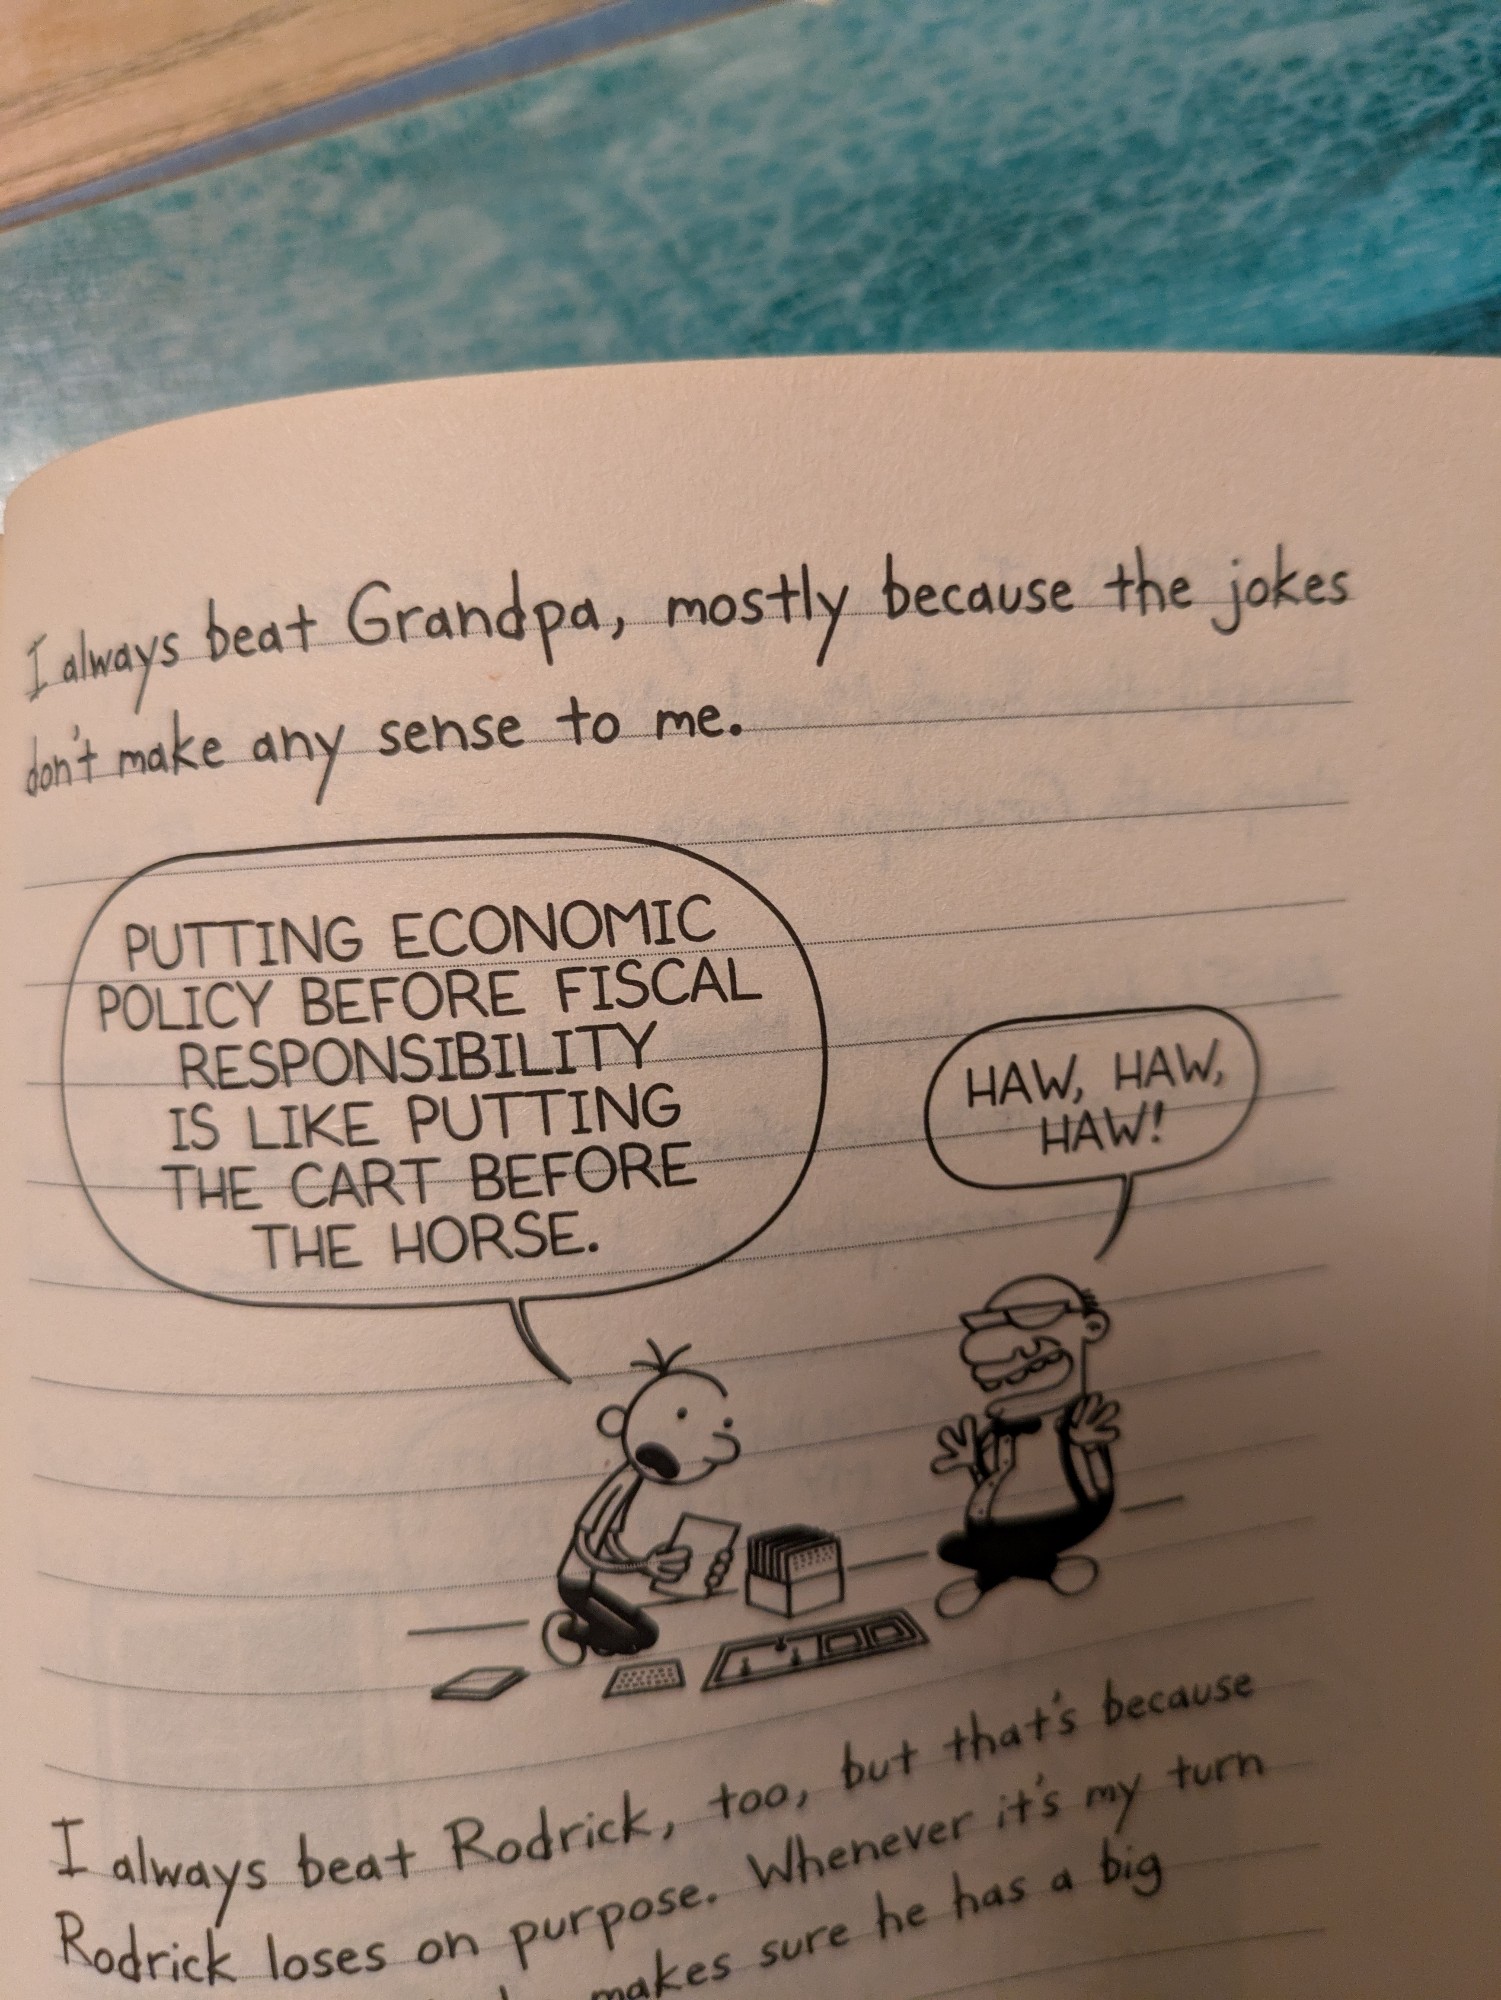 I always beat Grandpa, mostly because the jokes
don't make any sense to me.
PUTTING ECONOMIC
POLICY BEFORE FISCAL
RESPONSIBILITY
IS LIKE PUTTING
THE CART BEFORE
THE HORSE.
HAW, HAW,
HAW!
I always beat Rodrick, too, but that's because
Rodrick loses on purpose. Whenever it's my turn
makes sure he has a big